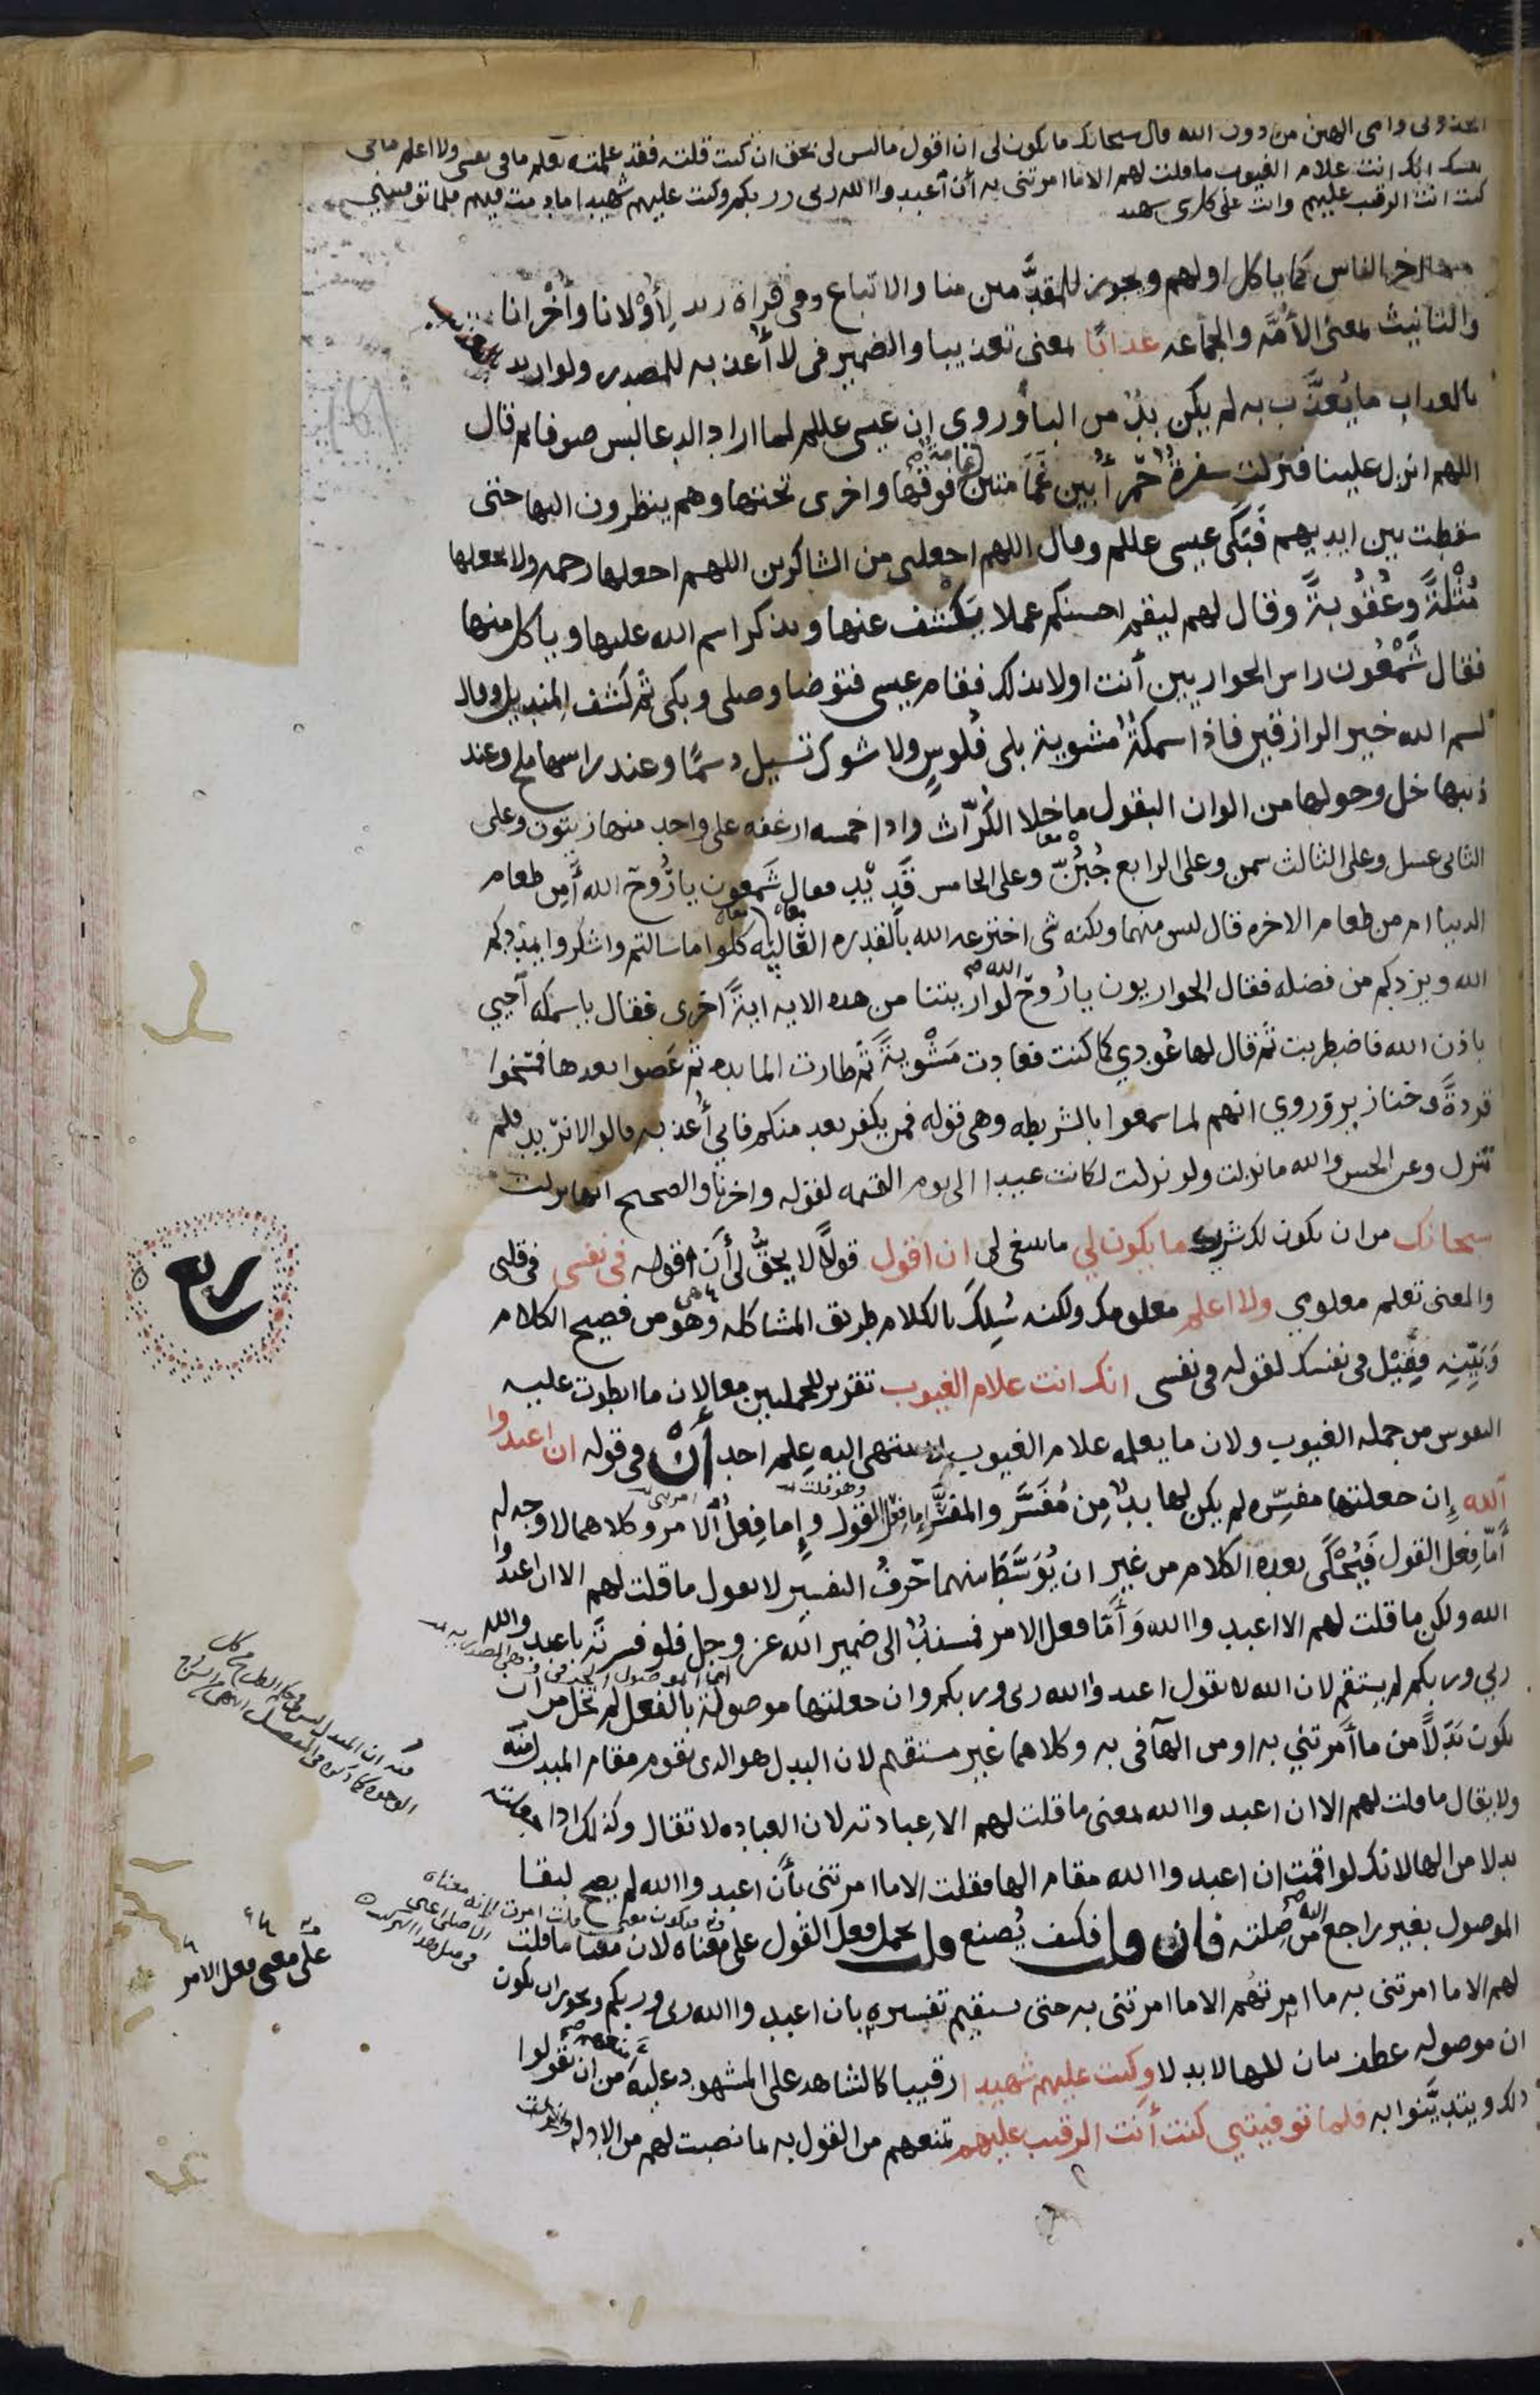 اتخذوني وامي الهين من دون الله قال سبحانك ما يكون لي ان اقول ما ليس لي بحق ان كنت قلته فقد علمته تعلم ما في نفسي ولا اعلم ما في
نفسك انك انت علام الغيوب ما قلت لهم الا ما امرتني به أن اعبدوا الله ربي وربكم وكنت عليهم شهيدا ما دمت فيهم فلما توفيتني
كنت انت الرقيب عليهم وانت على كل شي شهيد
منها اخر الناس كما ياكل اولهم ويجوز للمقدَّمين منا والاتباع وفي قراة زيد لِأُوْلانا وأُخْرانا
والتانيث لمعنى الأُمَّه والجماعه عذابًا بمعنى تعذيبا والضمير في لا أعذبه للمصدر ولو اريد
بالعذاب ما يُعذَّب به لم يكن بدٌ من الباء وروى ان عيسى عللم لما اراد الدعا لبس صوفا ثم قال
اللهم انزل علينا فنزلت سفرةٌ حَمْرأُ بين غمَامتين غمامة فوقها واخرى تحتها وهم ينظرون اليها حتى
سقطت بين ايديهم فَبَكَى عيسى عللم وقال اللهم اجعلني من الشاكرين اللهم اجعلها رحمه ولا تجعلها
مُثْلَةً وعُقُوبةً وقال لهم ليقم احسنكم عملا يَكْشف عنها ويذكر اسم الله عليها وياكل منها
فقال شَمْعُون راس الحواريين أنت اولا بذلك فقام عيسى فتوضا وصلى وبكى ثم كَشف المنديل وقال
بسم الله خير الرازقين فاذا سمكةٌ مشوية بلى فُلوسٍ ولا شوك تسيل دسمًا وعند راسها ملح وعند
ذنبها خل وحولها من الوان البقول ما خلا الكُرّاث واذا خمسه ارغفه على واحد منها زيتون وعلى
الثاني عسل وعلى الثالث سمن وعلى الرابع جُبُنّ وعلى الخامس قَدِيْد فقال شَمعون يا رُوحَ الله أَمِن طعام
الدنيا ام من طعام الاخره قال ليس منهما ولكنه شي اخترعه الله بالقدره الغَاليه كلوا ما سالتم واشكروا يمددكم
الله ويزدكم من فضله فقال الحواريون يا رُوحَ الله لو اريتنا من هذه الايه ايةً اخرى فقال يا سمكه أحيي
باذن الله فاضطربت ثم قال لها عُودي كما كنت فعادت مَشْويةً ثم طارت المايده ثم عَصوا بعدها فمُسخوا
قردةً وخنازير وَروي انهم لما سمعوا بالشريطه وهي قوله فمن يكفر بعد منكم فاني أعذبه قالوا لا نريد فلم
تنزل وعن الحسن والله ما نزلت ولو نزلت لكانت عيدا الى يوم القيمه لقوله واخرنا والصحيح انها نزلت
سبحانك من ان يكون لك شريك ما يكون لي ما ينبغي لي ان اقول قولًا لا يحقُّ لي أَن اقوله في نفسي في قلبي
والمعنى تعلم معلومي ولا اعلم معلومك ولكنه سُلِكَ بالكلام طريق المشاكله وهو من فصيح الكلام
وَبَيّنِه فقِيْل في نفسك لقوله في نفسي انك انت علام الغيوب تقرير للجملتين معا لان ما انطوت عليه
النفوس من جمله الغيوب ولان ما يعلمه علام الغيوب لا ينتهى اليه علم احد أَنْ في قوله ان اعبدوا
الله إن جعلتها مفسِّره لم يكن لها بدٌ مِن مُفَسَّر والمفسَّر إِما فِعْل القول وإما فِعلُ الامر وكلاهما لا وجه له
أمّا فِعل القول فيُحْكَى بعده الكلام من غير ان يُوَسَّط بينهما حَرفُ التفسير لا تقول ما قلت لهم الا ان اعبدوا
الله ولكن ما قلت لهم الا اعبدوا الله وَأَمّا فعل الامر فمسندٌ الى ضمير الله عز وجل فلو فسرتَه باعبدوا الله
ربي وربكم لم يستقم لان الله لا يقول اعبدوا الله ربي وربكم وان جعلتها موصولةً بالفعل لم تخل من ان
تكون بَدَلًا من ما أَمرتني به او من الهآ في به وكلاهما غير مستقيم لان البدل هو الذي يقوم مقام المبدل منه
ولا يقال ما قلت لهم الا ان اعبدوا الله بمعنى ما قلت لهم الا عِبادته لان العباده لا تقال وكذلك اذا جعلته
بدلا من الها لانك لو اقمت ان اعبدوا الله مقام الها فقلت الا ما امرتني بأَن اعبدوا الله لم يصح لبقا
الموصول بغير راجع من صِلته فان قلت فكيف يُصنع قلت يحمل فعل القول على معناه لان معنا ما قلت
لهم الا ما امرتني به ما امرتهُم الا ما امرتني به حتى يستقيم تفسيره بان اعبدوا الله ربي وربكم ويجوز ان تكون
ان موصوله عطف بيان للها لا بدلا وكنت عليهم شهيدا رقيبا كالشاهد على المشهود عليه من ان يقولوا
ذلك ويتديَّنوا به فلما توفيتني كنت أنت الرقيب عليهم تمنعهم من القول به بما نصبت لهم من الادله
ربع
على معنى فعل الامر